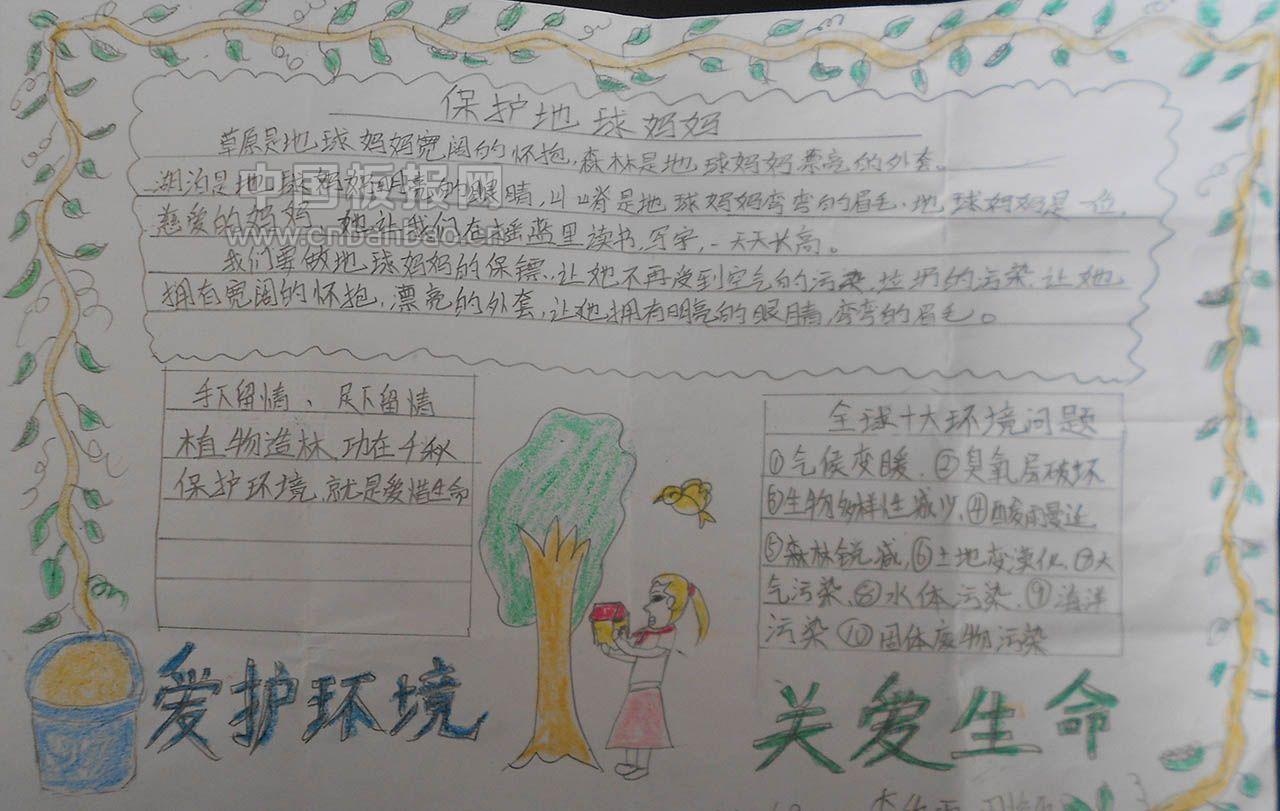 保护地球妈妈
草原是地球妈妈宽阔的怀抱，森林是地球妈妈漂亮的外套。
湖泊是地球妈妈明亮的眼睛，山脊是地球妈妈弯弯的眉毛，地球妈妈是一位
慈爱的妈妈，她让我们在摇蓝里读书，写字，一天天长高。
我们要做地球妈妈的保镖，让她不再受到空气的污染，垃圾的污染，让她
拥有宽阔的怀抱，漂亮的外套，让她拥有明亮的眼睛，弯弯的眉毛。
中国板报网
www.cnbanbao.
手下留情、足下留情
植物造林，功在千秋
保护环境，就是爱惜生命
全球十大环境问题
①气候变暖、②臭氧层破坏
③生物多样性减少、④酸雨蔓延
⑤森林锐减，⑥土地变漠化，⑦大
气污染、⑧水体污染、⑨海洋
污染⑩固体废物污染
爱护环境
关爱生命